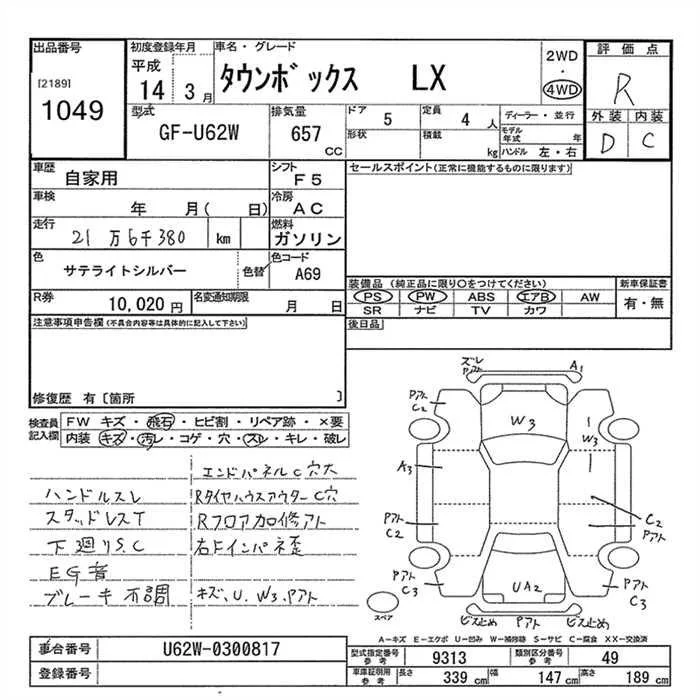 出品番号 初度登録年月 車名・グレード 評価点
[2189] 1049
平成 14年 3月
タウンボックス LX
2WD・4WD
R
外装 内装
D C
型式 GF-U62W
排気量 657 CC
ドア 5 定員 4人
形状 積載 kg
ディーラー・並行
モデル年式 年
ハンドル 左・右
車歴 自家用
シフト F5
セールスポイント(正常に機能するものに限ります)
車検 年 月( 日)
冷房 AC
走行 21万6千380 km
燃料 ガソリン
色 サテライトシルバー 色替
色コード A69
装備品(純正品に限り○をつけてください) 新車保証書
PS PW ABS エアB AW 有・無
SR ナビ TV カワ
R券 10,020円 名変通知期限 月 日
後日品
注意事項申告欄(不具合内容等は具体的に記入して下さい)
修復歴 有〔箇所 〕
検査員記入欄
FW キズ・飛石・ヒビ割・リペア跡・×要
内装 キズ・汚レ・コゲ・穴・スレ・キレ・破レ
エンドパネルC穴大
ハンドルスレ RタイヤハウスアウターC穴
スタッドレスT Rフロア加修アト
下廻りS.C 右Fインパネ歪
EG音
ブレーキ不調 キズ、U、W3、Pアト
ズレ Pアト A1
Pアト C2 W3 W3
A3
Pアト C2 C2 Pアト
Pアト C3 UA2 Pアト C3
スペア ビス止め Pアト ビス止め
A−キズ E−エクボ U−凹み W−補修跡 S−サビ C−腐食 XX−交換済
車台番号 U62W-0300817
型式指定番号 参考 9313 類別区分番号 参考 49
登録番号
車庫証明用 参考 長さ 339 cm 幅 147 cm 高さ 189 cm